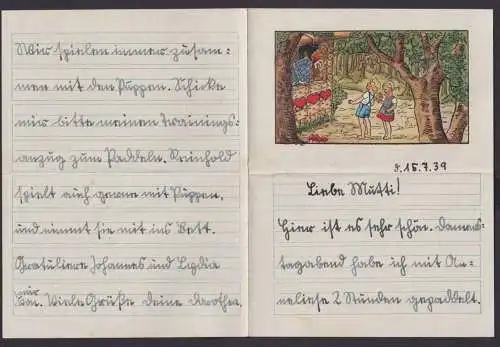 d. 15.7.39
Liebe Mutti!
Hier ist es sehr schön. Donners=
tagabend habe ich mit An=
neliese 2 Stunden gepaddelt.
Wir spielen immer zusam=
men mit den Puppen. Schicke
mir bitte meinen Trainings=
anzug zum Paddeln. Reinhold
spielt auch gerne mit Puppen,
und nimmt sie mit ins Bett.
Gratuliere Johannes und Lydia
mir
von. Viele Grüße deine Dorothea.